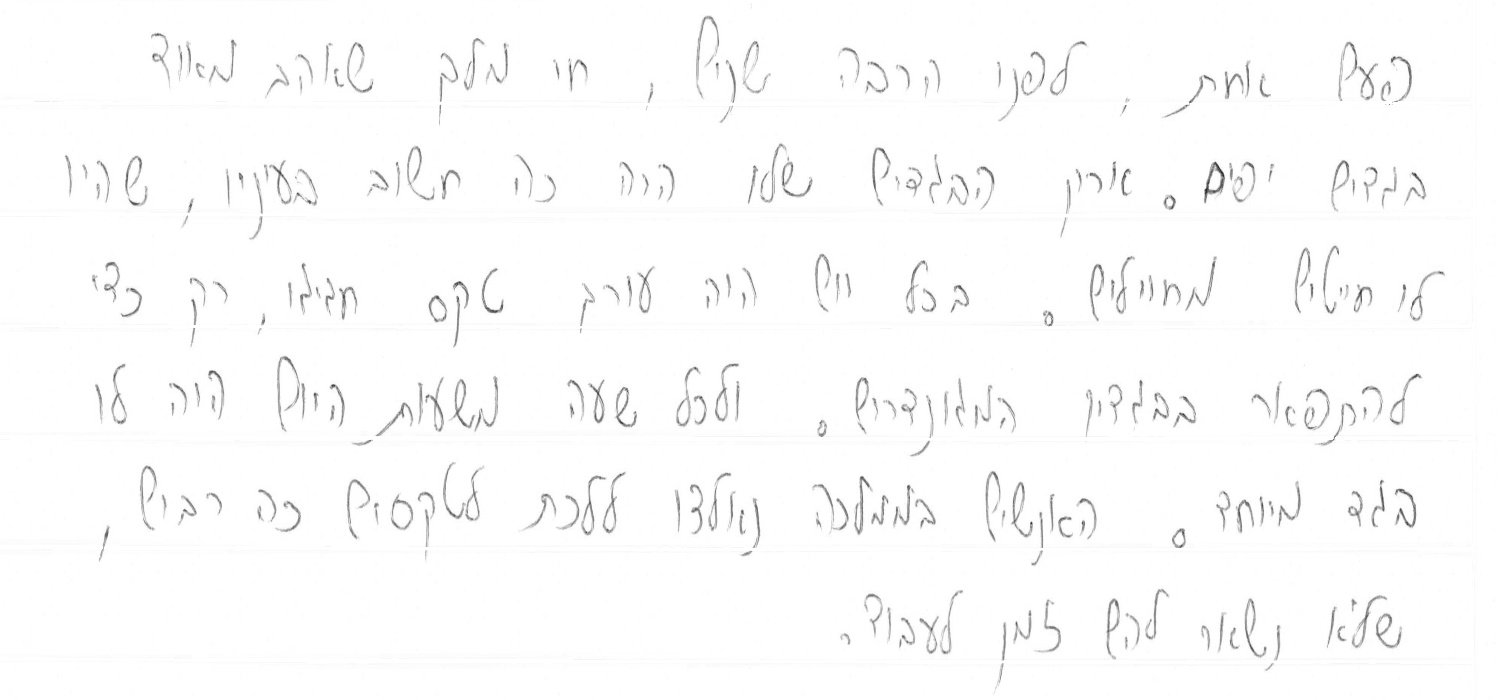 פעם אחת, לפני הרבה שנים, חי מלך שאהב מאוד
בגדים יפים. ארון הבגדים שלו היה כה חשוב בעיניו, שהיו
לו חייטים מחוייליפ. בכל יום היה עורך טקס חגיגי, רק כדי
להתפאר בבגדיו המגונדרים. ולכל שעה משעות היום היה לו
בגד מיוחד. האנשים בממלכה נאלצו ללכת לטקסים כה רבים,
שלא נשאר להם זמן לעבוד.